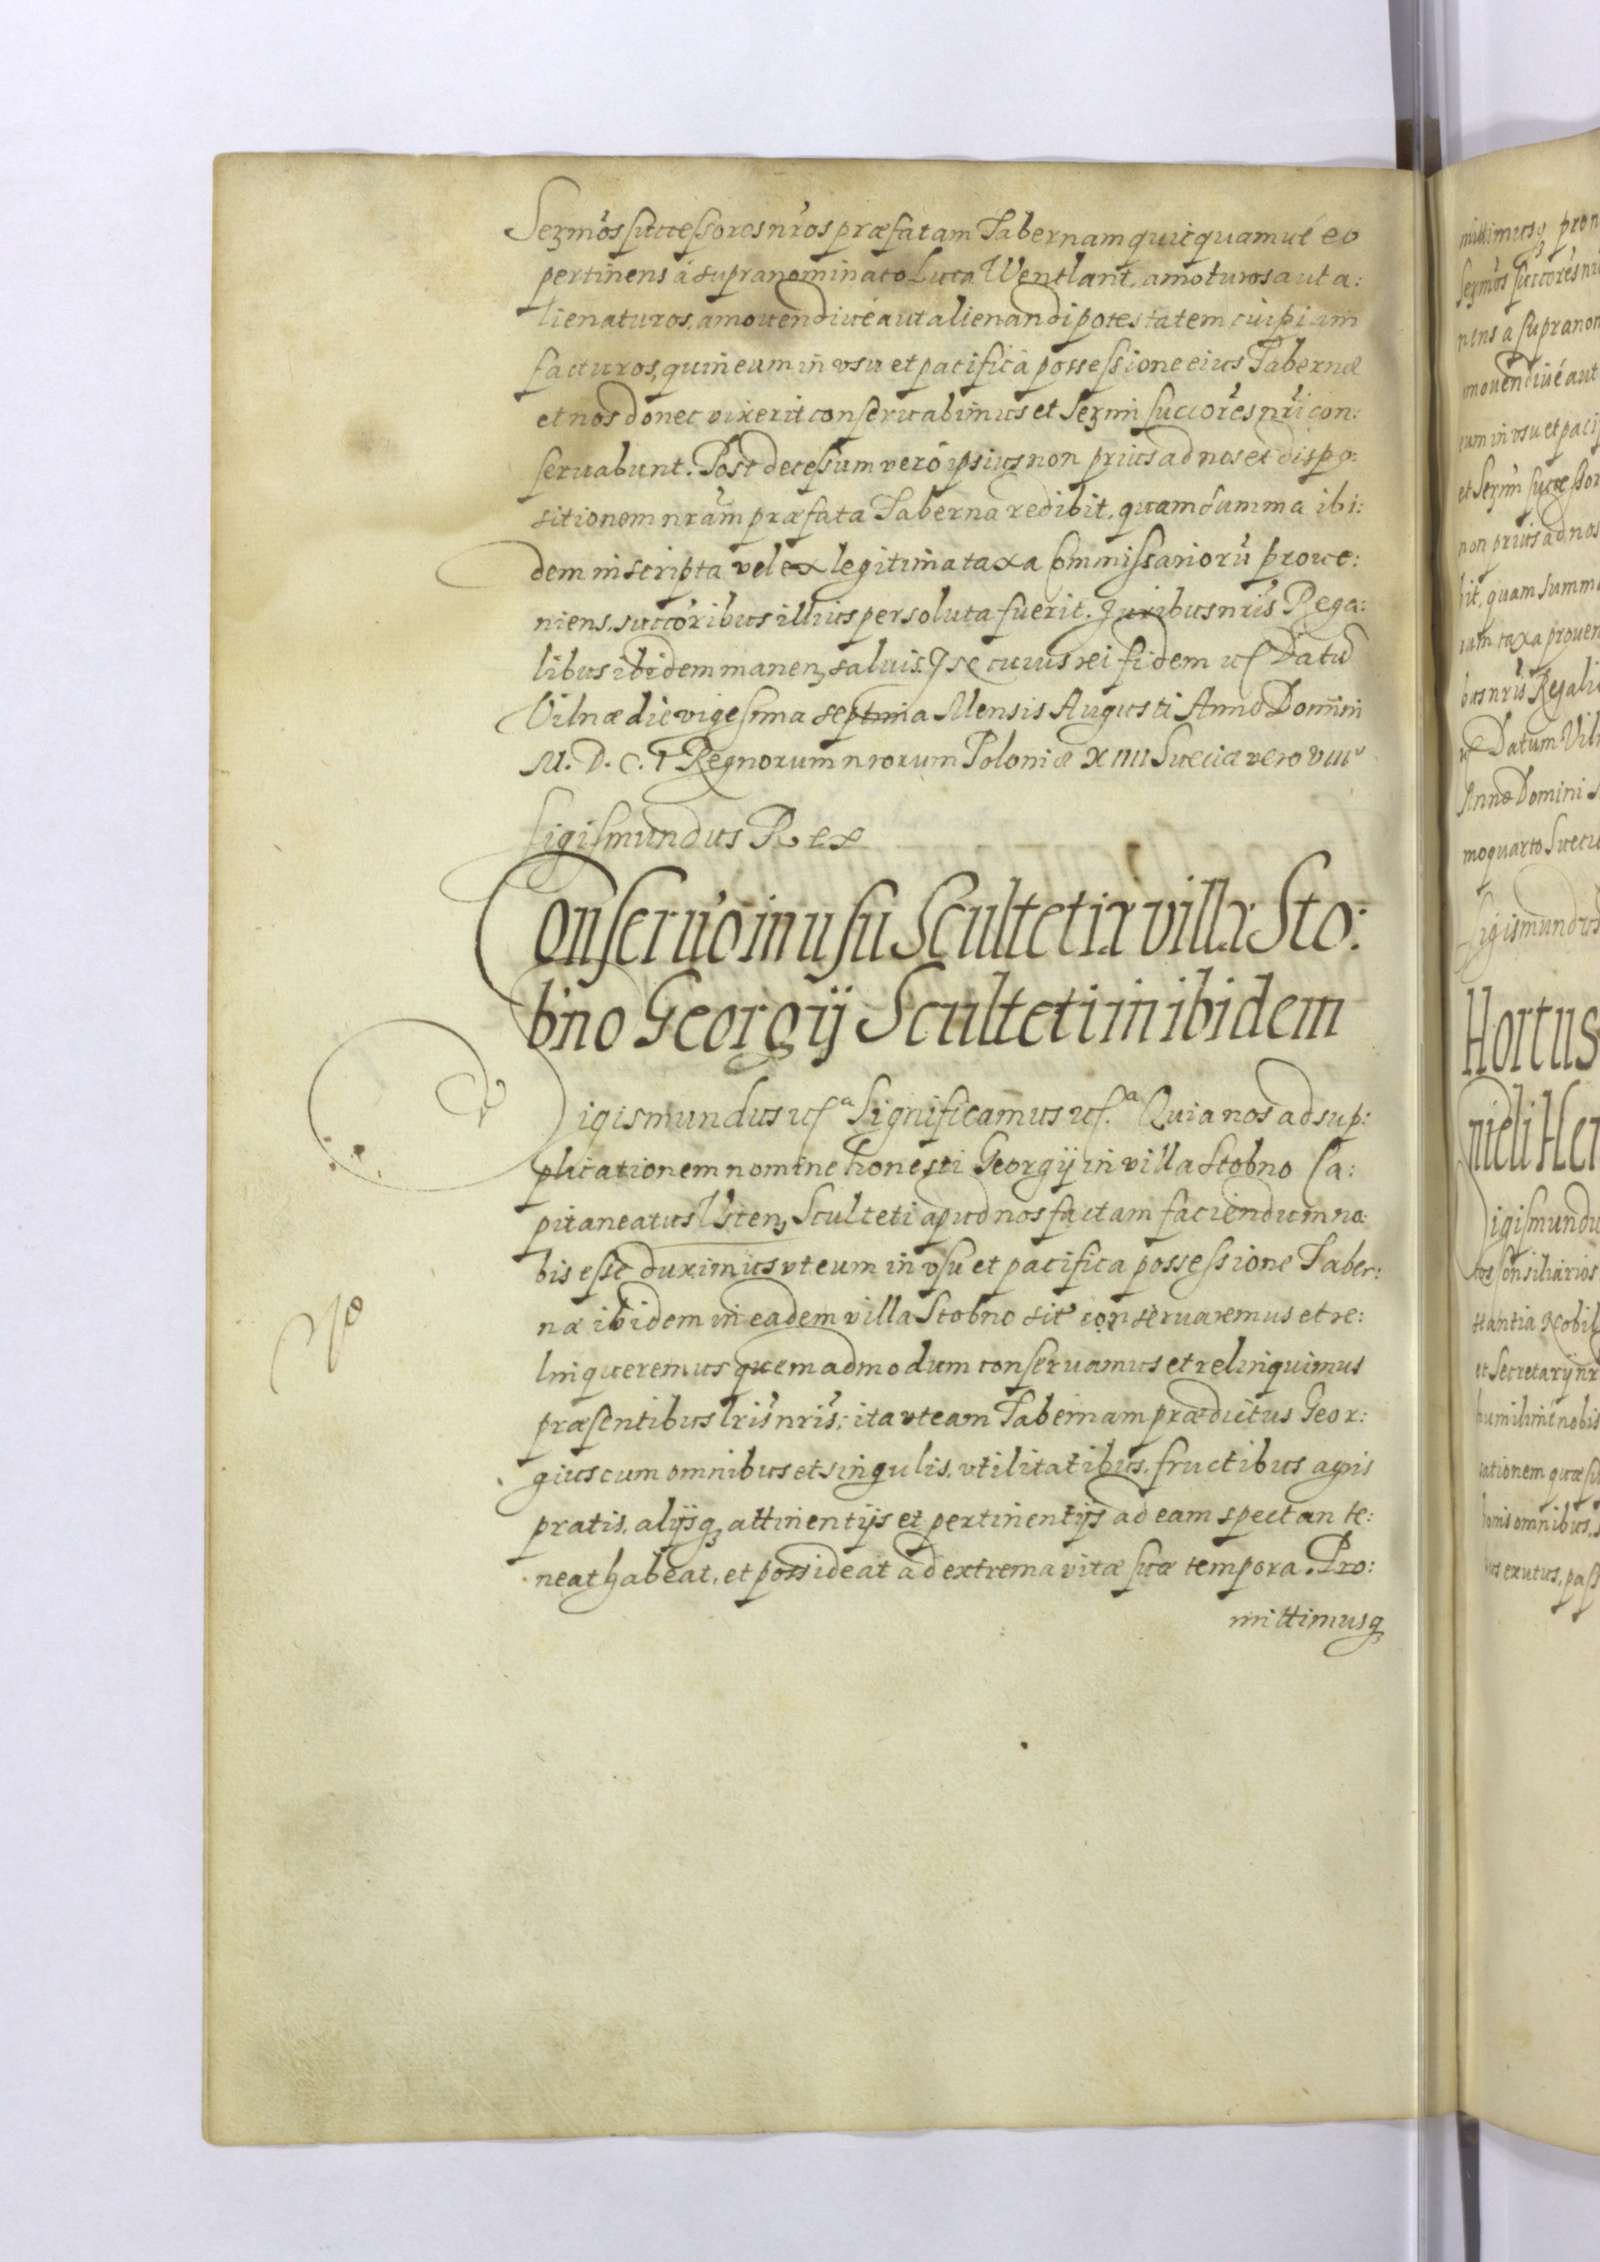 Sermos successores nros præfatam Tabernam quicquamue eo
pertinens á supranominato Luca Wentlant, amoturos aut a:
lienaturos, amouendiué aut alienandi potestatem cuipiam
facturos, quin eum in vsu et pacificà possessione eius Tabernæ
et nos donec vixerit conseruabimus et Sermi succores nri con:
seruabunt. Post decessum veró ipsius non prius ad nos et dispo:
sitionem nram præfata Taberna redibit, quam summa ibi:
dem inscripta vel ex legitima taxa Commissarioru proue:
niens, succoribus illius persoluta fuerit. Juribus nris Rega:
libus ibidem manen, saluis. In cuius rei fidem uс Datu
Vilnæ die vigesima septima Mensis Augusti Anno Domini
M. D. C. I Regnorum nrorum Poloniæ XIIII Sueciæ vero VIII
Sigismundus Rex
Conseruo in usu Scultetiæ villæ Sto:
bno Georgij Sculteti in ibidem
Sigismundus uc. Significamus uc. Quia nos ad sup:
plicationem nomine honesti Georgij in villa Stobno Ca:
pitaneatus Vsten, Sculteti apud nos factam faciendum no
bis esse duximus vt eum in vsu et pacifica possessione Taber:
næ ibidem in eadem villa Stobno sitæ conseruaremus et re:
linqueremus quemadmodum conseruamus et relinquimus
præsentibus lris nris; ita vt eam Tabernam prædictus Geor:
gius cum omnibus et singulis, vtilitatibus, fructibus agris
pratis, alijsq attinentijs et pertinentijs ad eam spectan te:
neat habeat, et possideat ad extrema vitæ suæ tempora. Pro:
mittimusq
mittimusq pron
Sermos succores
nens a supranom
mouendiué aut
eum in vsu et paci
et Sermi successor
non prius ad nos
bit, quam summa
iam taxa prouen
bus nris Regali
Datum Viln
Anno Domini
moquarto Sueci
Sigismundus
Hortus
nieli Hen
Sigismundu
Consiliarios
stantia Nobil
et Secretarij nr
nobis
rationem quæ su
omnibus
exutus, pass